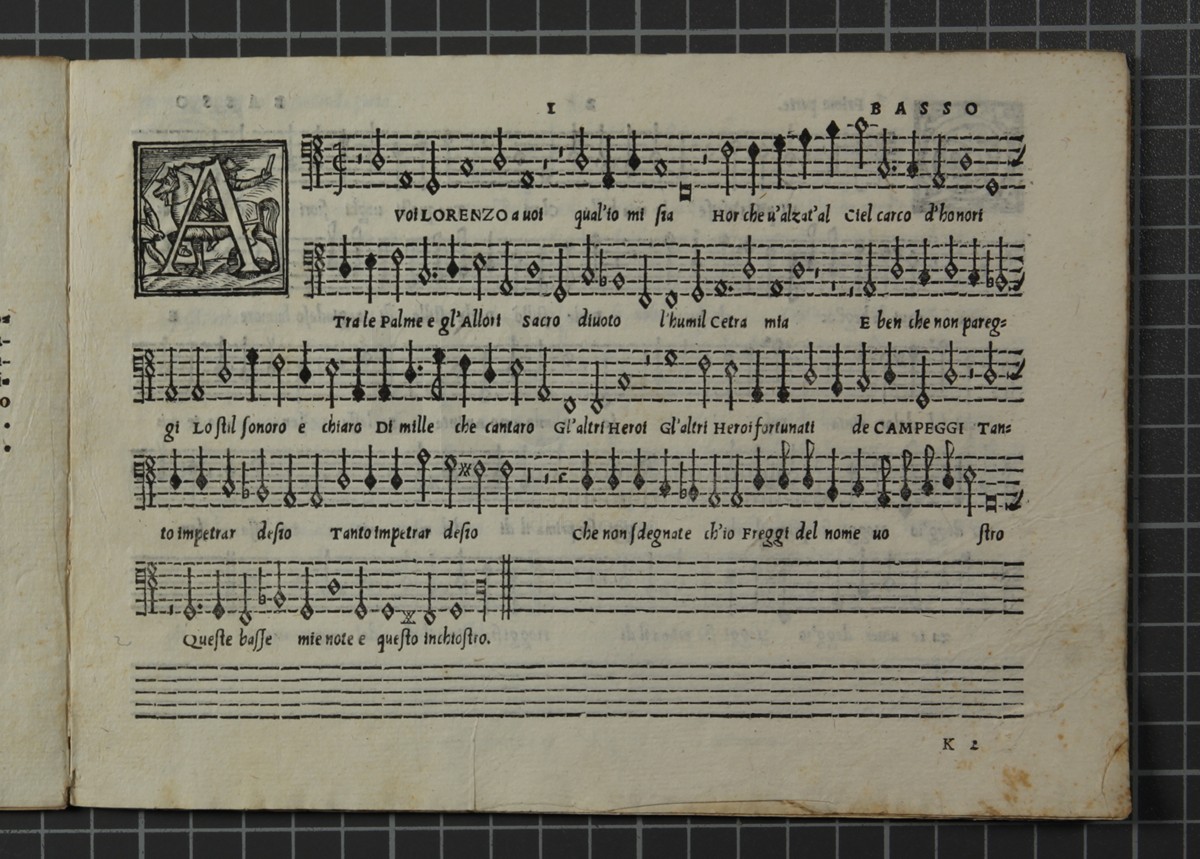 1 BASSO
A VOI LORENZO a uoi qual'io mi sia Hor che u'alzat'al Ciel carco d'honori
Tra le Palme e gl'Allori Sacro diuoto l'humil Cetra mia E ben che non pareg=
gi Lo stil sonoro e chiaro Di mille che cantaro Gl'altri Heroi Gl'altri Heroi fortunati de CAMPEGGI Tan=
to impetrar desio Tanto impetrar desio Che non sdegnate ch'io Freggi del nome uo stro
Queste basse mie note e questo inchiostro.
K 2